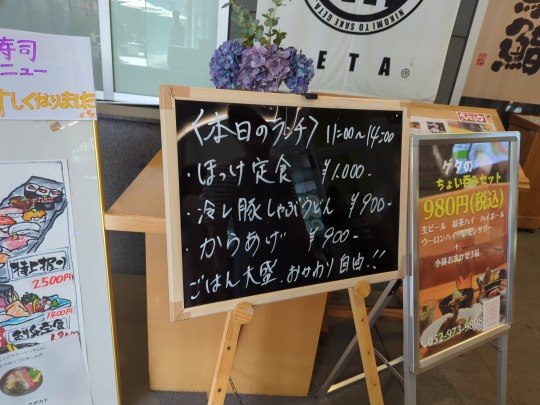 寿司
ニュー
すしくなりました
特上握り
2,500円
1400円
NIKOMI TO SAKE GETA
ETA
鮨
〈本日のランチ〉 11:00〜14:00
・ほっけ定食 ¥1.000-
・冷し豚しゃぶうどん ¥900-
・からあげ ¥900-
ごはん大盛、おかわり自由!!
ゲタの
ちょい呑みセット
980円(税込)
生ビール 緑茶ハイ ハイボール
ウーロンハイ レモンサワー
+
小鉢おまかせ3品
052-973-9898